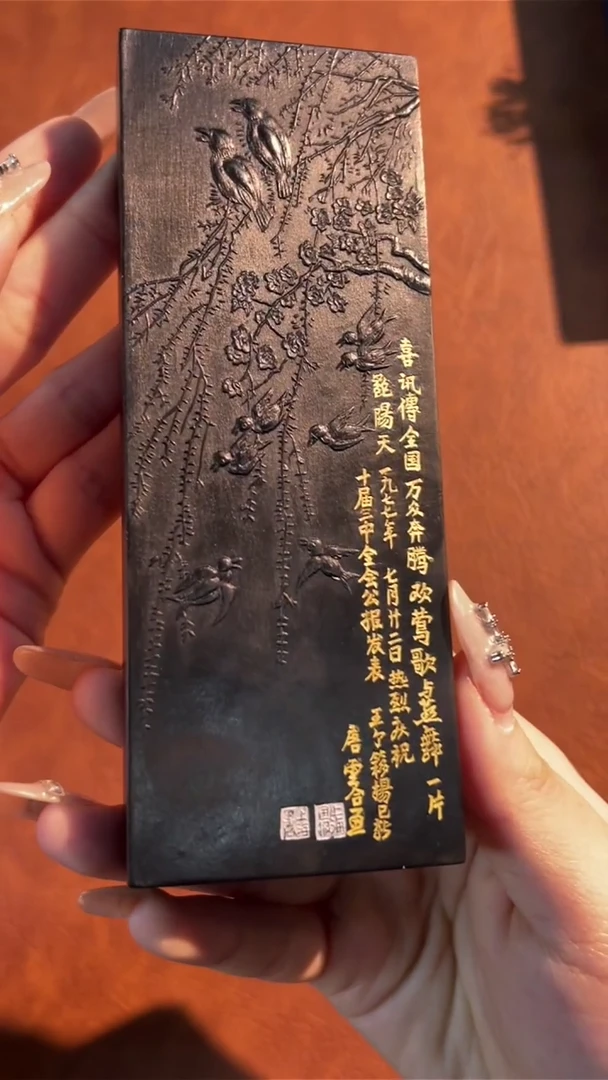 喜讯傳全国 万众奔腾 欢莺歌与燕舞 一片
艳陽天 一九七七年 七月廿二日热烈庆祝
十届三中全会公报发表
唐雲合画